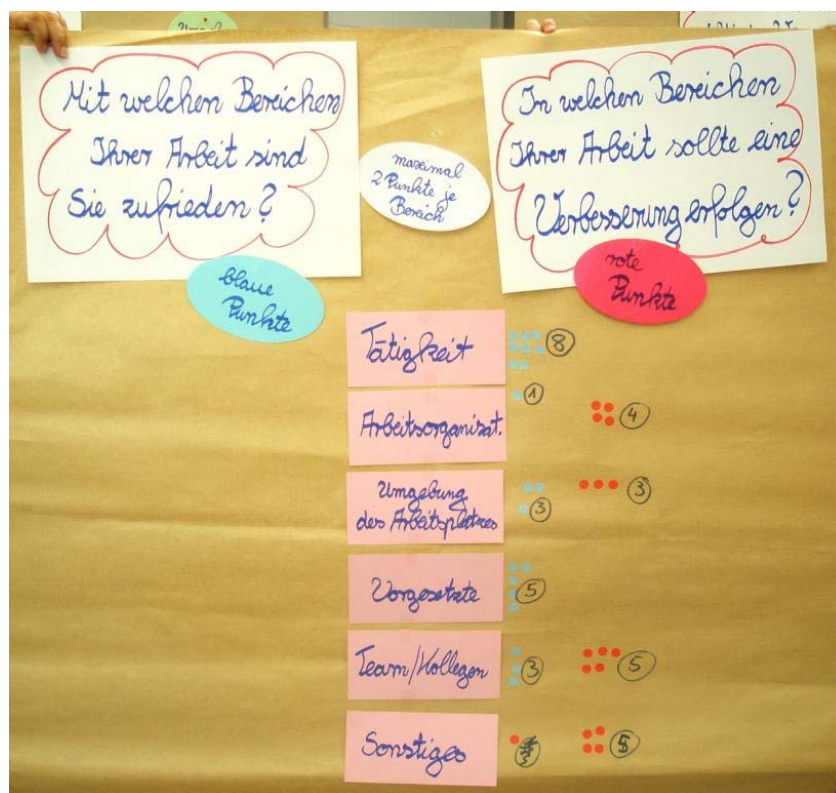 Mit welchen Bereichen
Ihrer Arbeit sind
Sie zufrieden?
maximal
2 Punkte je
Bereich
In welchen Bereichen
Ihrer Arbeit sollte eine
Verbesserung erfolgen?
blaue
Punkte
rote
Punkte
Tätigkeit
8
Arbeitsorganisat.
1
4
Umgebung
des Arbeitsplatzes
3
3
Vorgesetzte
5
Team/Kollegen
3
5
Sonstiges
5